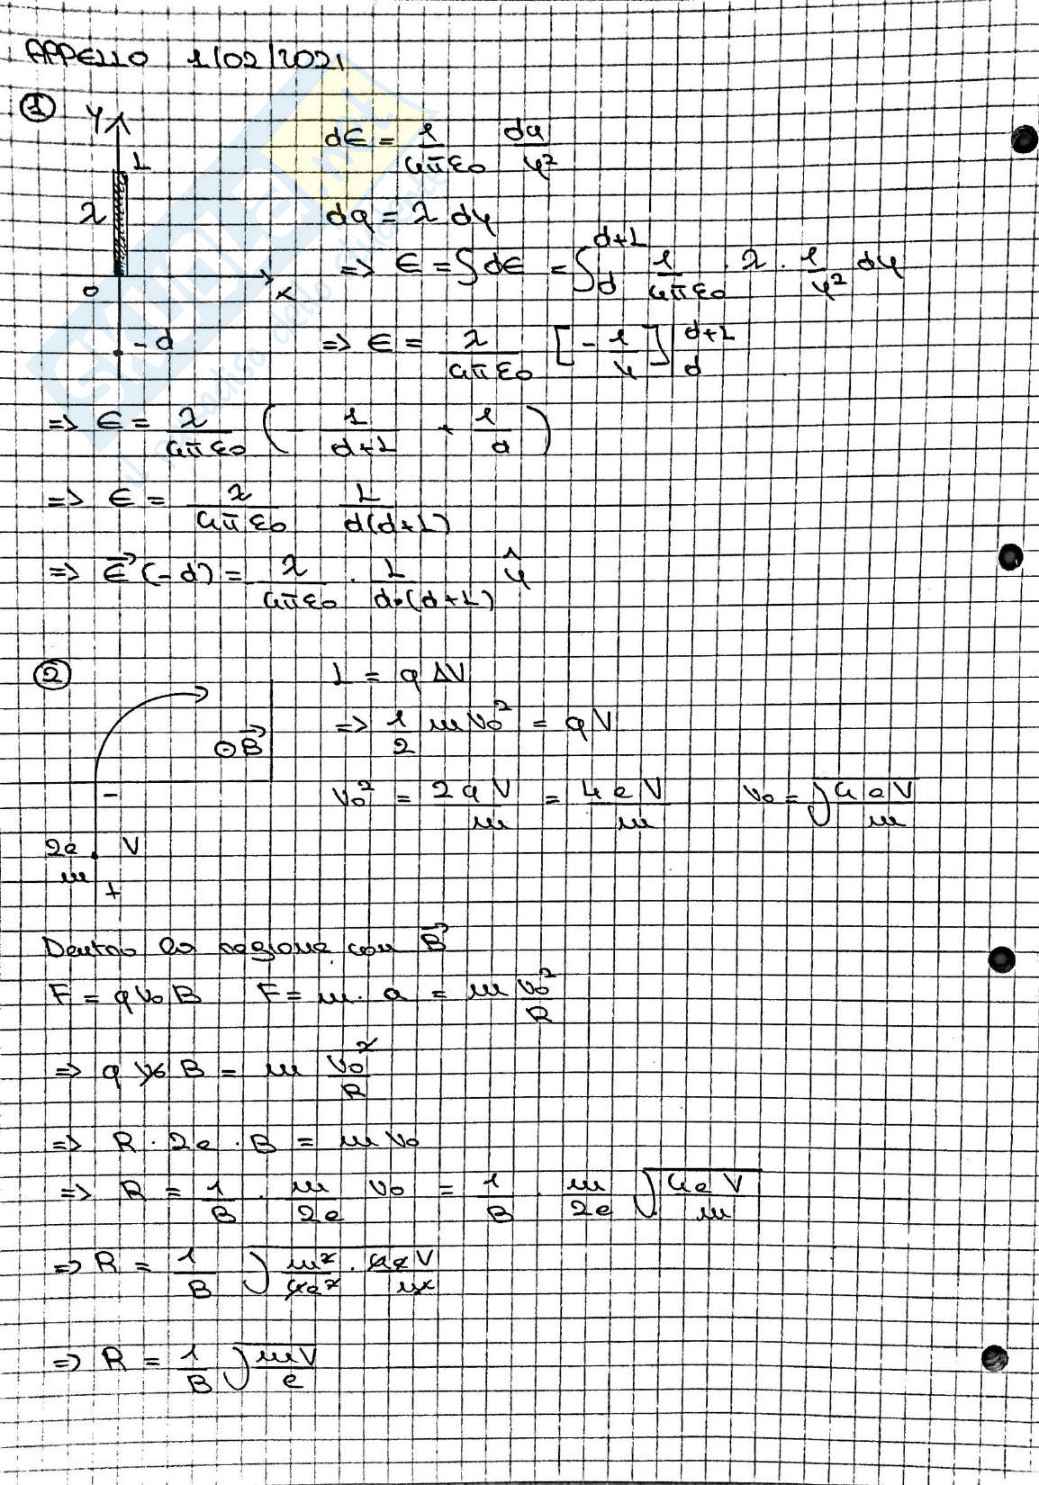 APPELLO 1/02/2021
①
y
L
λ
0
x
-d
dE = 1/(4πε0) dq/y²
dq = λ dy
=> E = ∫dE = ∫_d^{d+L} 1/(4πε0) · λ · 1/y² dy
=> E = λ/(4πε0) [-1/y]_d^{d+L}
=> E = λ/(4πε0) (-1/(d+L) + 1/d)
=> E = λ/(4πε0) L/(d(d+L))
=> E⃗(-d) = λ/(4πε0) · L/(d·(d+L)) ŷ
②
⊙B⃗
-
2e
m
V
+
L = qΔV
=> 1/2 m v0² = qV
v0² = 2qV/m = 4eV/m v0 = √(4eV/m)
Dentro la regione con B⃗
F = q v0 B F = m · a = m v0²/R
=> q v0 B = m v0²/R
=> R · 2e · B = m v0
=> R = 1/B · m/2e v0 = 1/B · m/2e √(4eV/m)
=> R = 1/B √(m²/4e² · 4eV/m)
=> R = 1/B √(mV/e)